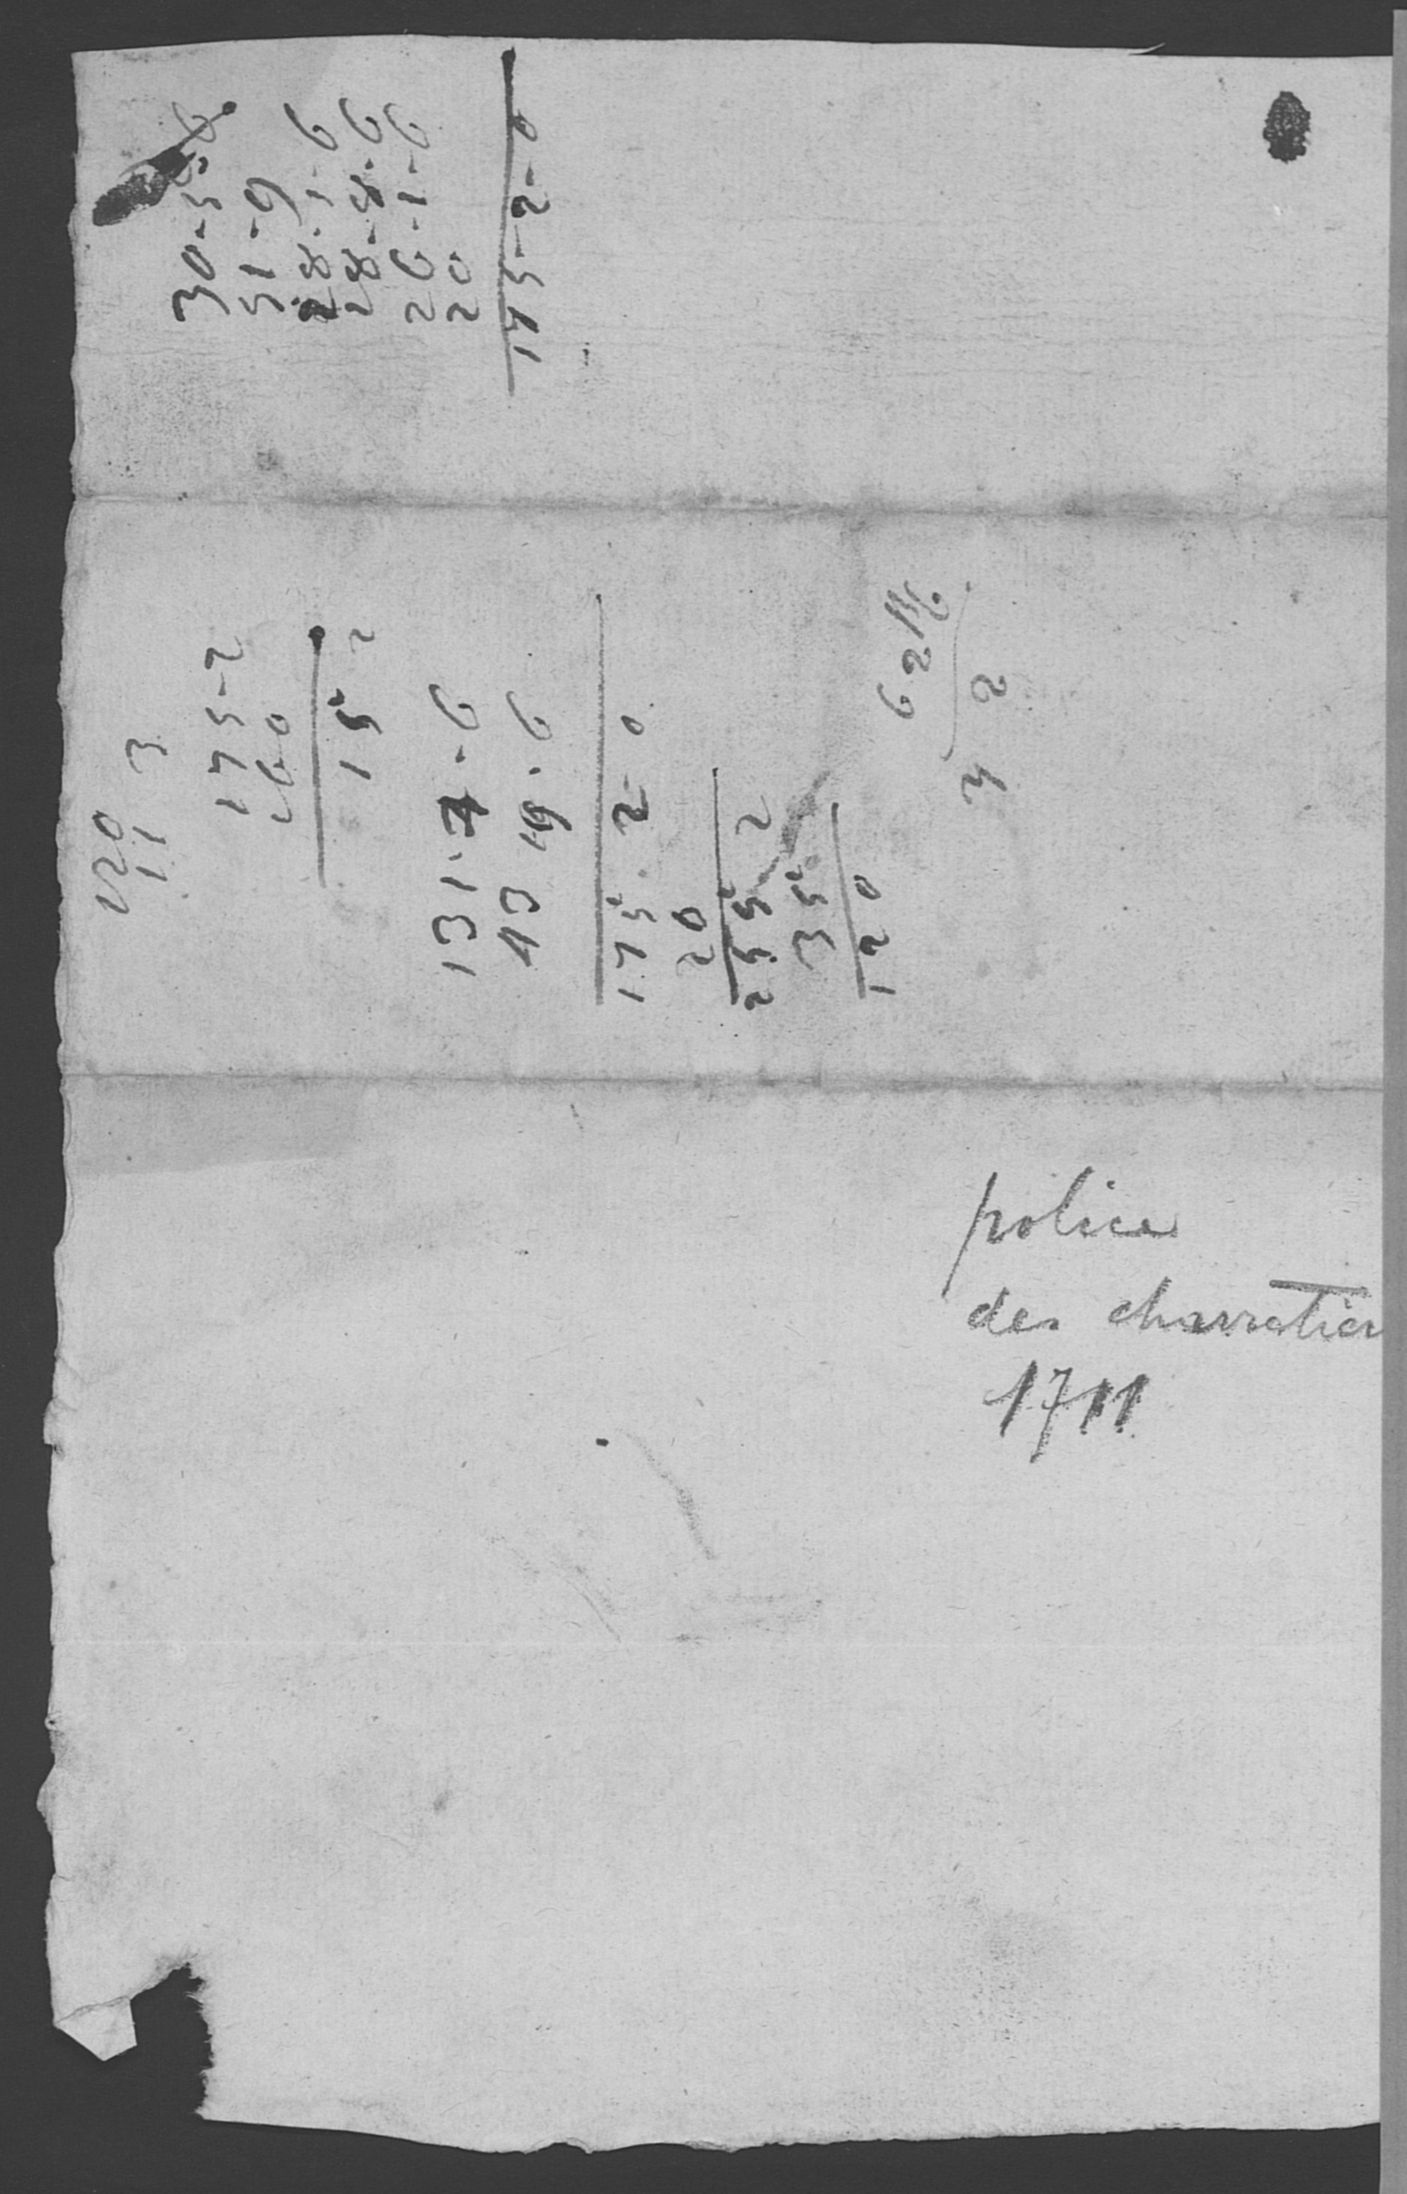 30-5-6
51-9
28-1-6
28-8-6
26-1-6
20
175-2-0
120
11
3
175-2
160
15 2
131-2-6
43 19-6
175-2-0
20
255 2
35
120
6 2
2
police
des charretier
1711